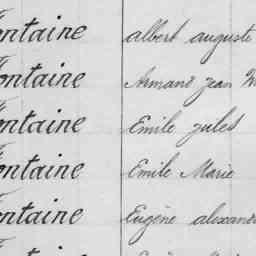 ontaine albert auguste
ontaine Armand Jean
ontaine Emile jules
ontaine Emile Marie
ontaine Eugène alexand